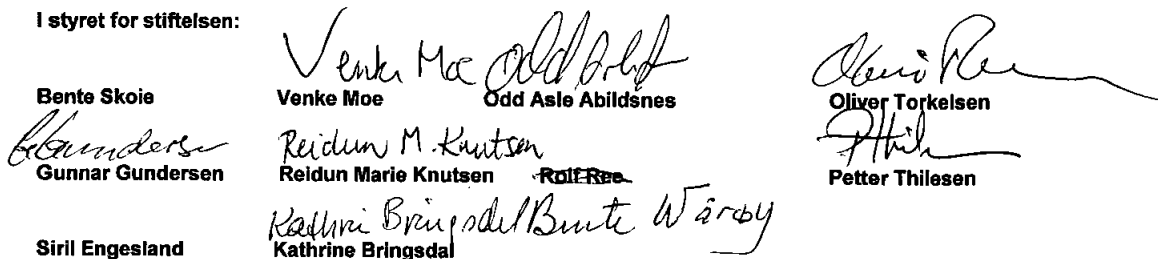 I styret for stiftelsen:
Venke Moe Odd
Bente Skoie Venke Moe Odd Asle Abildsnes Oliver Torkelsen
Gundersen Reidun M. Knutsen PThil
Gunnar Gundersen Reidun Marie Knutsen Rolf Ree Petter Thilesen
Kathrine Bringsdal Bente Wårøy
Siril Engesland Kathrine Bringsdal